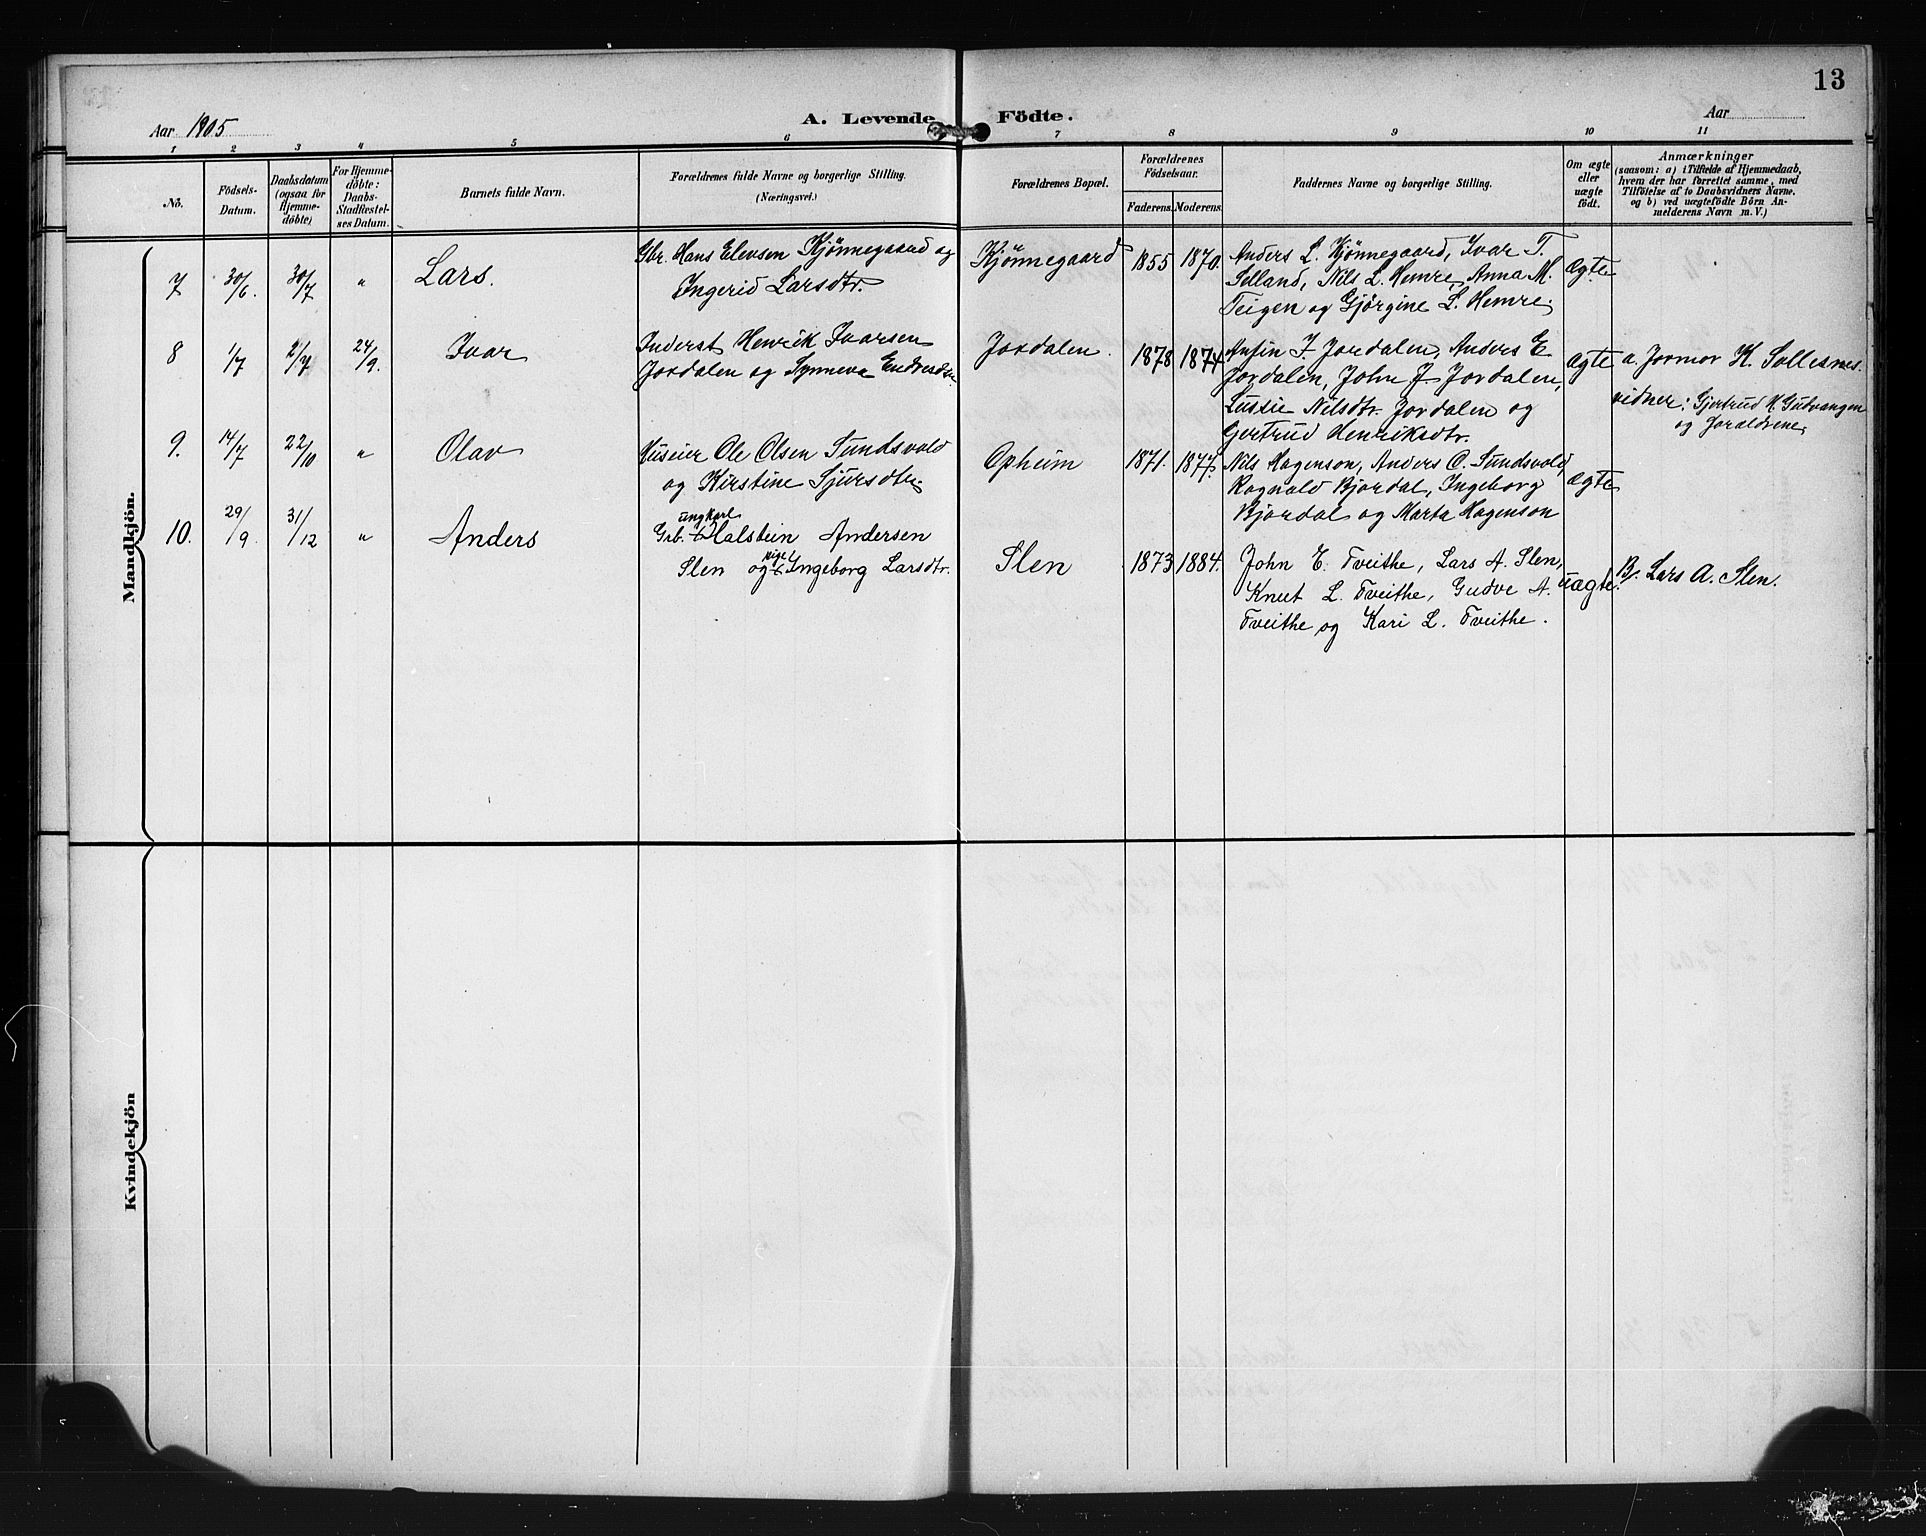 13
Aar 1905
A. Levende Födte.
Aar
1 2 3 4 5 6 7 8 9 10 11
No.
Födsels-
Datum.
Daabsdatum
(ogsaa for
Hjemme-
döbte)
For Hjemme-
döbte:
Daabs-
Stadfæstel-
ses Datum.
Barnets fulde Navn.
Forældrenes fulde Navne og borgerlige Stilling.
(Næringsvei.)
Forældrenes Bopæl.
Forældrenes
Födselsaar.
Faderens. Moderens.
Faddernes Navne og borgerlige Stilling.
Om ægte
eller
uægte
födt.
Anmærkninger
(saasom: a) i Tilfælde af Hjemmedaab,
hvem der har forrettet samme, med
Tilföielse af to Daabsvidners Navne.
og b) ved uægtefödte Börn An-
melderens Navn m. V.)
Mandkjön.
7 30/6. 30/7 " Lars.
Gbr. Hans Elevsen Kjönnegaard og
Ingerid Larsdtr.
Kjönnegaard 1855 1870.
Anders L. Kjönnegaard, Ivar T.
Selland, Nils L. Hemre, Anna M.
Teigen og Gjörgine L. Hemre.
ægte
8 1/7 2/7 24/9. Ivar
Inderst Henrik Ivarsen
Jordalen og Synneva Endresdtr.
Jordalen. 1878 1874
Anfin I. Jordalen, Anders E
Jordalen, John J. Jordalen,
Lussie Nilsdtr. Jordalen og
Gertrud Henriksdtr.
ægte
a. Jormor K. Sollesnes.
vidner: Gjertrud N. Gudvangen
og Foraldrene.
9. 14/7 22/10 " Olav
Huseier Ole Olsen Sundsvold
og Kirstine Sjursdtr.
Opheim 1871. 1877.
Nils Hagenson, Anders O. Sundsvold,
Ragnald Bjordal, Ingeborg
Bjordal og Marta Hagenson
ægte
10. 29/9. 31/12 " Anders
ungkarl
Grb. Halstein Andersen
Slen og pige Ingeborg Larsdtr.
Slen 1873 1884.
John E. Tveithe, Lars A. Slen,
Knut L. Tveithe, Gudve A.
Tveithe og Kari L. Tveithe.
uægte.
B/. Lars A. Slen.
Kvindekjön